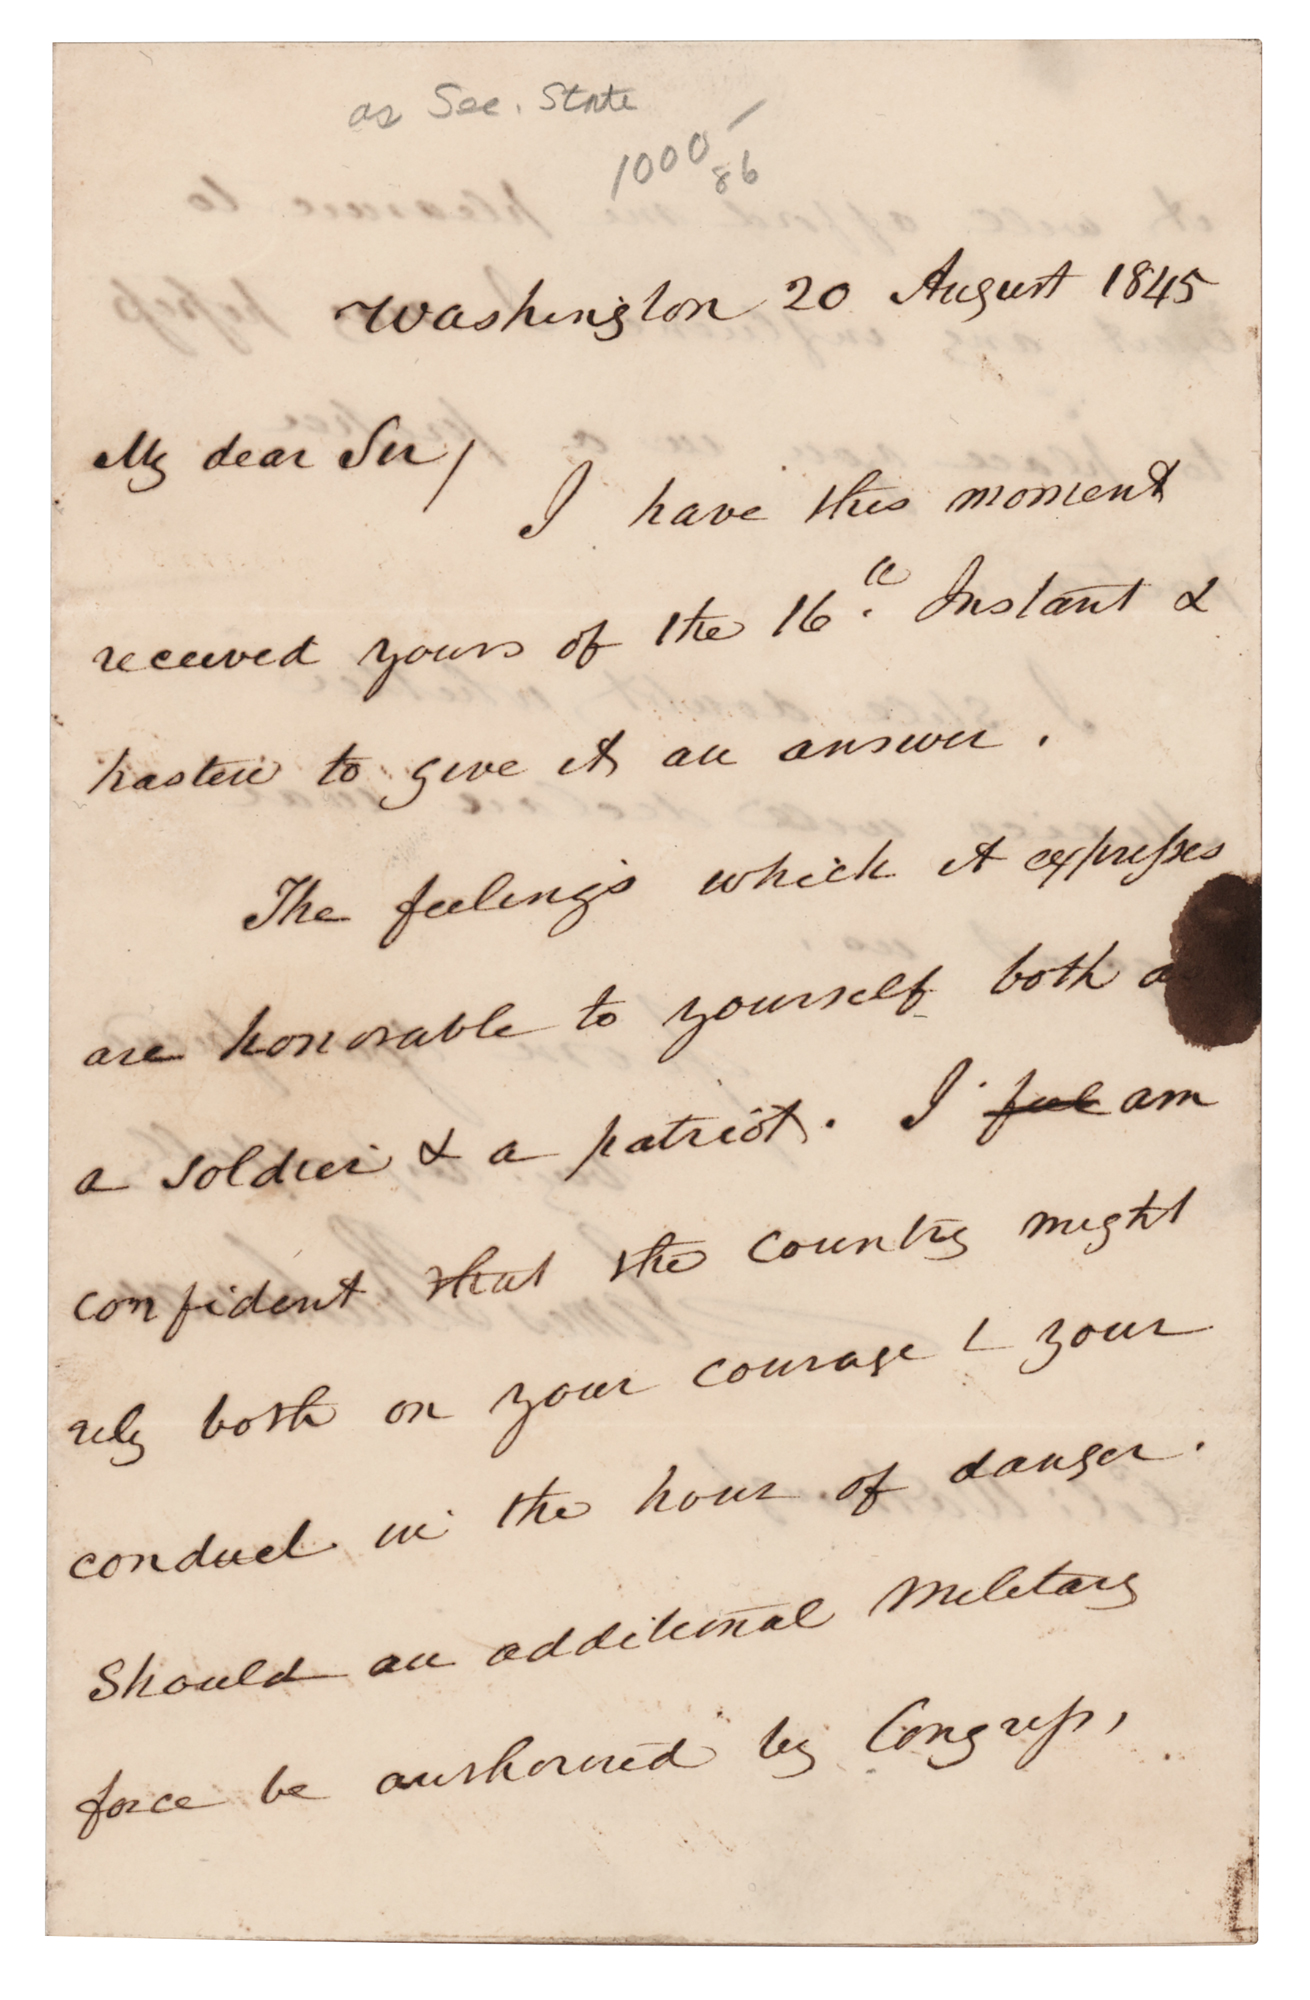 as Sec. State
1000 -
86
Washington 20 August 1845
My dear Sir/
I have this moment
received yours of the 16th. Instant &
hasten to give it an answer.
The feelings which it expresses
are honorable to yourself both a
a soldier & a patriot. I feel am
confident that the country might
rely both on your courage & your
conduct in the hour of danger.
Should an additional military
force be authorised by Congress,